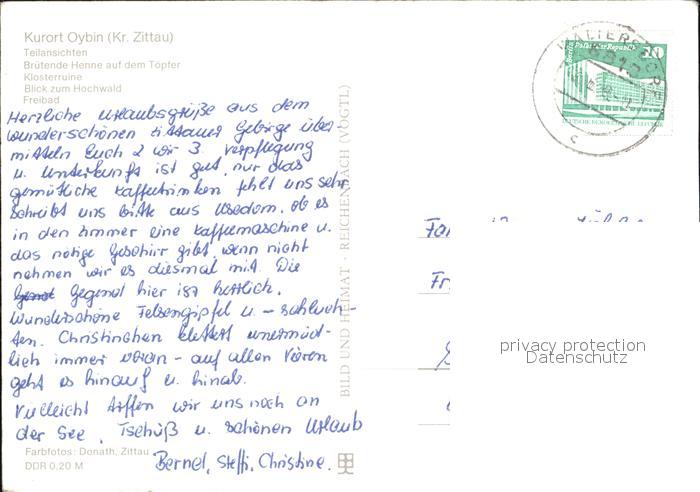 Kurort Oybin (Kr. Zittau)
Teilansichten
Brütende Henne auf dem Töpfer
Klosterruine
Blick zum Hochwald
Freibad
Herzliche Urlaubsgrüße aus dem
wunderschönen Zittauer Gebirge über
mitteln Euch 2 wir 3. Verpflegung
u. Unterkunft ist gut, nur das
gemütliche Kaffeetrinken fehlt uns sehr.
Schreibt uns bitte aus Usedom, ob es
in den Zimmer eine Kaffeemaschine u.
das nötige Geschirr gibt, wenn nicht
nehmen wir es diesmal mit. Die
Gegend hier ist herrlich.
Wunderschöne Felsengipfel u. - schluch-
ten. Christinchen klettert unermüd-
lich immer voran - auf allen Vieren
geht es hinauf u. hinab.
Vielleicht treffen wir uns noch an
der See. Tschüß u. schönen Urlaub
Bernd, Steffi, Christine.
Farbfotos: Donath, Zittau
DDR 0,20 M
BILD UND HEIMAT · REICHENBACH (VOGTL)
Berlin, Palast der Republik
10
DEUTSCHE DEMOKRATISCHE REPUBLIK
WALTERSDORF
c
Fa
Fr
privacy protection
Datenschutz